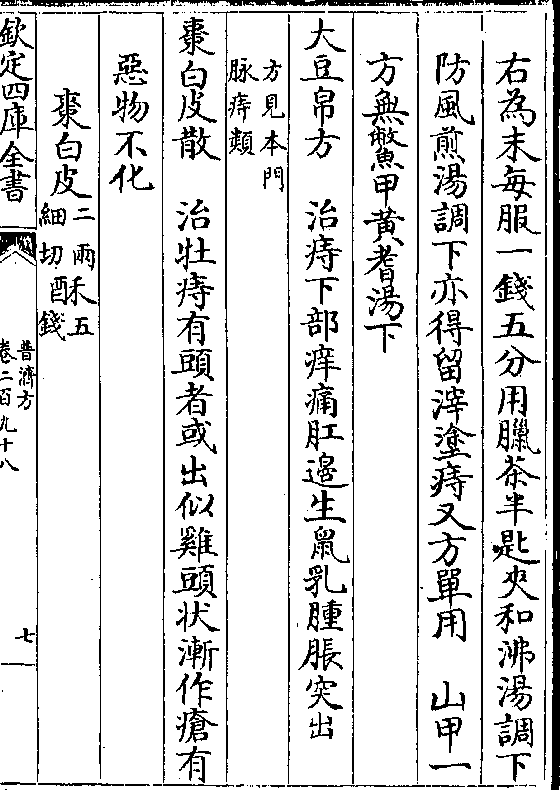 右為末每服一錢五分用臘茶半匙夾和沸湯調下
防風煎湯調下亦得留滓塗痔又方單用　山甲一
方無鱉甲黄耆湯下
大豆帛方　治痔下部痒痛肛邉生鼠乳腫脹突出
方見本門
脉痔類
棗白皮散　治牡痔有頭者或出似雞頭状漸作瘡有
惡物不化
棗白皮二兩細切　酥五錢
欽定四庫全書
普濟方
卷二百九十八
七